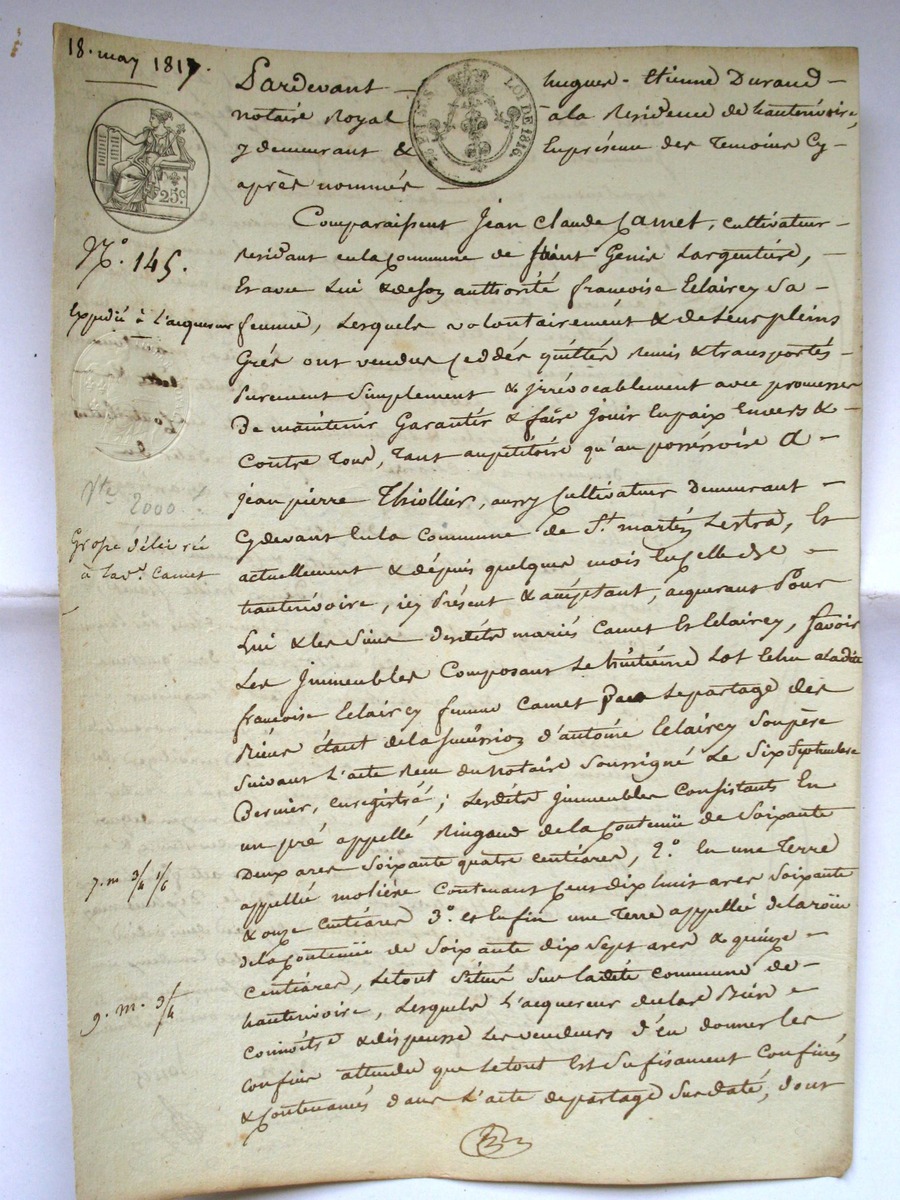 18. may 1817.
Pardevant hugues - Etienne Durand -
notaire Royal à la Residence de hauterivoire,
y demeurant & En présence des Temoins Cy-
après nommés
LOI DE 1816.
25c.
N.° 145.
Expédié à l'acquereur
Grosse délivrée
à lad.e Camet
2000
7. m 3/4 1/6
9. m. 3/4
Comparaissent Jean Claude Camet, cultivateur
Residant en la Commune de saint Genis Largentière,
Et avec Lui & de son authorité francoise Eclaircy Sa
femme, Lesquels volontairement & de Leurs pleins
Grés ont vendus Ceddés quittés Remis & transportés
Purement Simplement & jrrévocablement avec promesses
De maintenir Garantir & faire Jouir En paix Envers &
Contre Tous, Tant au pétitoire qu'au posséssoire A
Jean pierre Thiollier, aussy Cultivateur Demeurant
Cydevant En la Commune de St. martin Lestra, Et
actuellement & dépuis quelques mois En Celle de
hauterivoire, icy Présent & acceptant, acquerant Pour
Lui & les Siens desdits mariés Camet Et Eclaircy, Savoir
Les Jmmeubles Composant Le huitième Lot Echu a Ladite
francoise Eclaircy femme Camet Par Le partage des
Biens étant de la succession d'antoine Eclaircy Son père
Suivant L'acte Recu du Notaire Soussigné Le Six Septembre
Dernier, enregistré; Lesdits Jmmeubles Consistants En
un pré appellé Ringaud de la Contenüe de Soixante
Deux ares Soixante quatre centiares, 2.° En une Terre
appellé molière Contenant Cent dix huit ares Soixante
& onze Centiares 3.° et Enfin une Terre appellée de la roüe
de la Contenüe de Soixante dix Sept ares & quinze
Centiares, Le tout Situé Sur Ladite Commune de
hauterivoire, Lesquels L'acquereur déclare Bien
Connoître & dispense Les vendeurs d'en donner les
Confins attendu que Le tout Est Sufisament Confinés
& Contenancés dans L'acte de partage Sus daté, dont